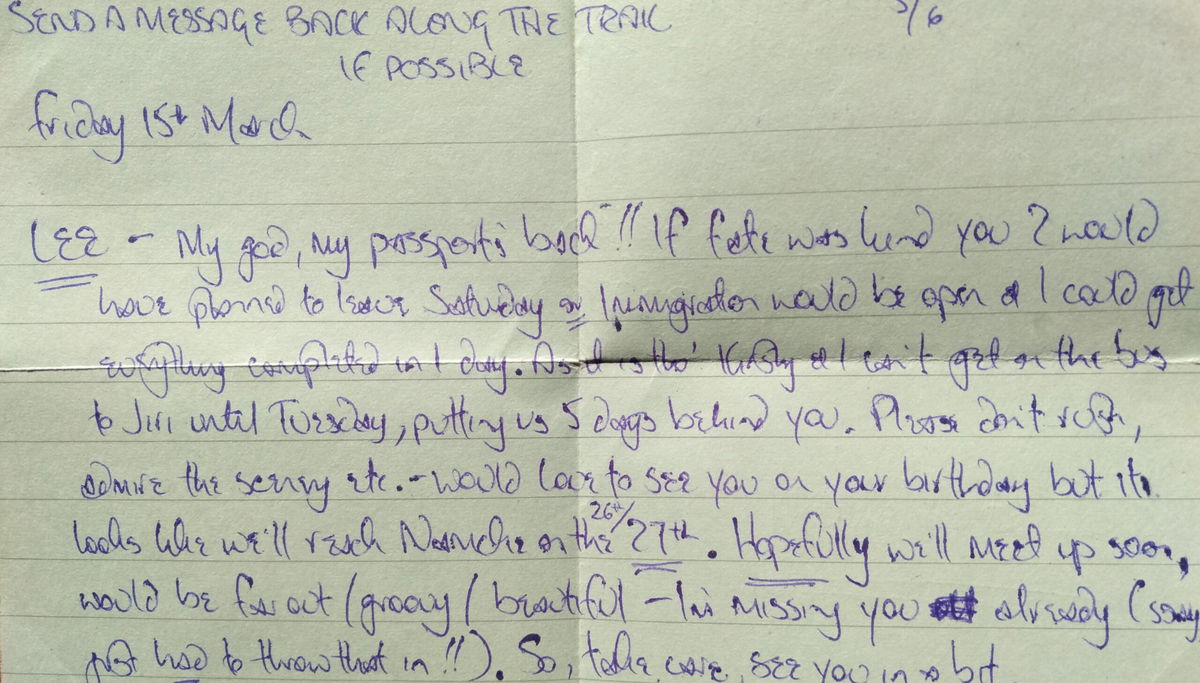 SEND A MESSAGE BACK ALONG THE TRAIL 5/6
IF POSSIBLE
Friday 15th March
LEE - My god, my passport's back!! If fate was kind you 2 would
have planned to leave Saturday or Immigration would be open & I could get
everything completed in 1 day. As it is tho' Kirsty & I can't get on the bus
to Jiri until Tuesday, putting us 5 days behind you. Please don't rush,
admire the scenery etc. - would love to see you on your birthday but it
looks like we'll reach Namche on the 26th/27th. Hopefully we'll meet up soon,
would be far out / groovy / beautiful - I'm missing you already (sorry
just had to throw that in!!). So, take care, see you in a bit